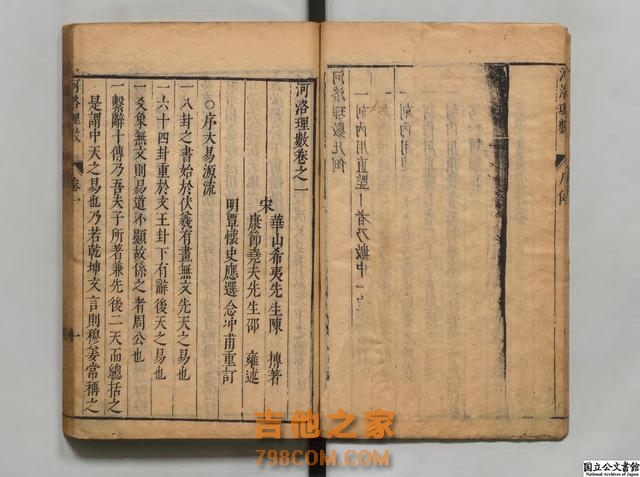 河洛理數
凡例
一刻內用直豎丨者乃數中一
河洛理數凡例
河洛理數卷之一
宋
華山希夷先生陳　摶著
康節堯夫先生邵　雍述
明覃懷史應選念冲甫重訂
〇序大易源流
一八卦之書始於伏羲有畫無文先天之易也
一六十四卦重於文王卦下有辭後天之易也
一爻象無文則易道不顯故係之者周公也
一繫辭十傳乃吾夫子所著兼先後二天而總括之
是謂中天之易也乃若乾坤文言則穆姜常稱之
河洛理數　卷一　一
吉他之家
798COM.COM
国立公文書館
National Archives of Japan